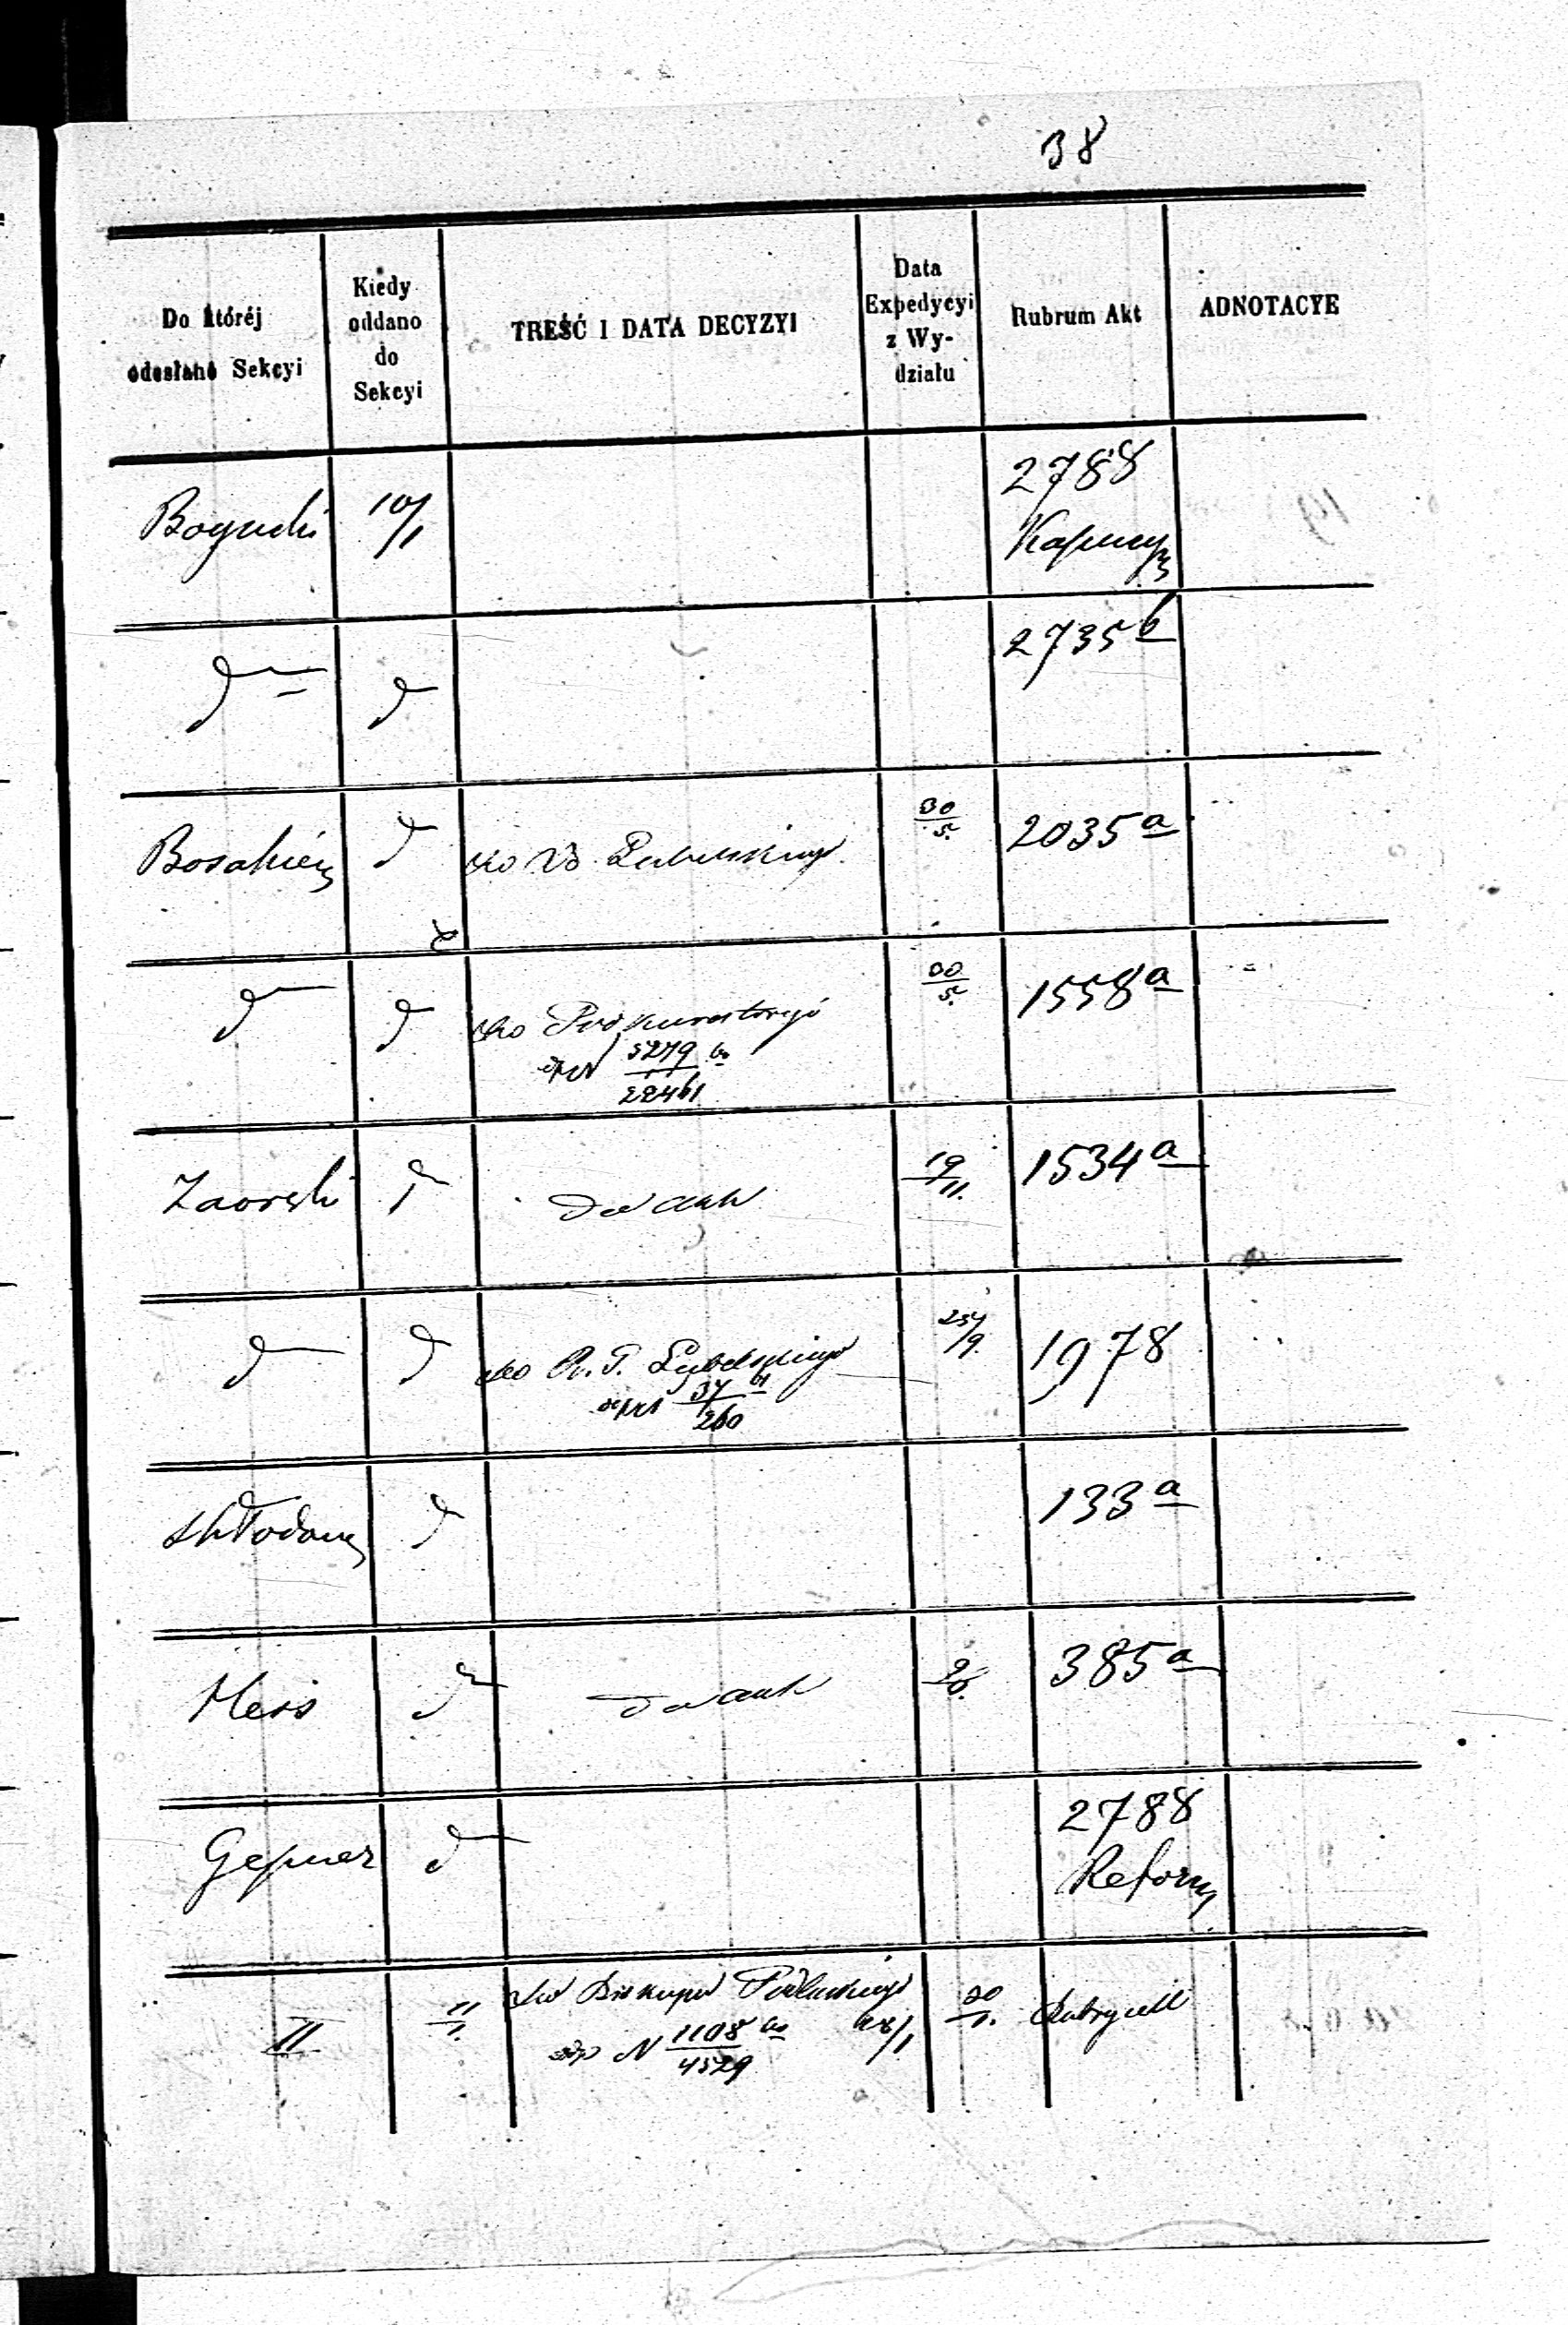 38
Do któréj odesłano Sekcyi
Kiedy oddano do Sekcyi
TREŚĆ I DATA DECYZYI
Data Expedycyi z Wydziału
Rubrum Akt
ADNOTACYE
Bogucki 10/1 2788
Kapucyn
d d 2735 b
d do Lubelskiego 30/5 2035 a
d d do Prokuratoryi 30/5 1558 a
5279
22461
Zaorski d do akt 19/11 1534 a
d d do R. G. Lubelskiego 25/9 1978
37
260
d 133 a
Heis d do akt 385 a
Gepner d 2788
Reform
II 11/1 do Biskupa Podlaskiego 20/1
N 1108
4529